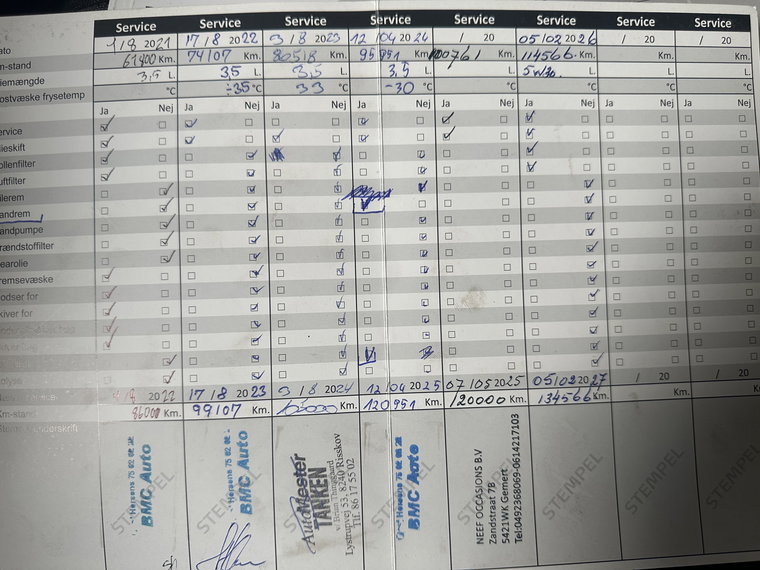 Service Service Service Service Service Service Service Service
ato 1/8 2021 17/8 2022 9/8 2023 12/04 2024 / 20 05/02 2026 / 20 / 20
m-stand 61400 Km. 74107 Km. 86518 Km. 95951 Km. 100761 Km. 114566 Km. Km. Km.
iemængde 3,5 L. 35 L. 3,5 L. 3,5 L. L. 5w30. L. L. L.
ostvæske frysetemp °C -35 °C 33 °C -30 °C °C °C °C °C
Ja Nej Ja Nej Ja Nej Ja Nej Ja Nej Ja Nej Ja Nej Ja Nej
ervice
ieskift
ollenfilter
uftfilter
ilerem
andrem
andpumpe
rændstoffilter
earolie
remsevæske
odser for
kiver for
2022 17/8 2023 9/8 2024 12/04 2025 07/05 2025 05/02 2027 / 20 / 20
Km-stand 86000 Km. 99107 Km. Km. 120951 Km. 120000 Km. 134566 Km. Km. Km.
STEMPEL
BMC Auto
STEMPEL
BMC Auto
STEMPEL
AutoMester
TANKEN
Lystrupvej 53, 8240 Risskov
Tlf. 86 17 55 02
STEMPEL
BMC Auto
NEEF OCCASIONS B.V
Zandstraat 7B
5421WK Gemert
Tel:0492368069-0614217103
STEMPEL
STEMPEL
STEMPEL